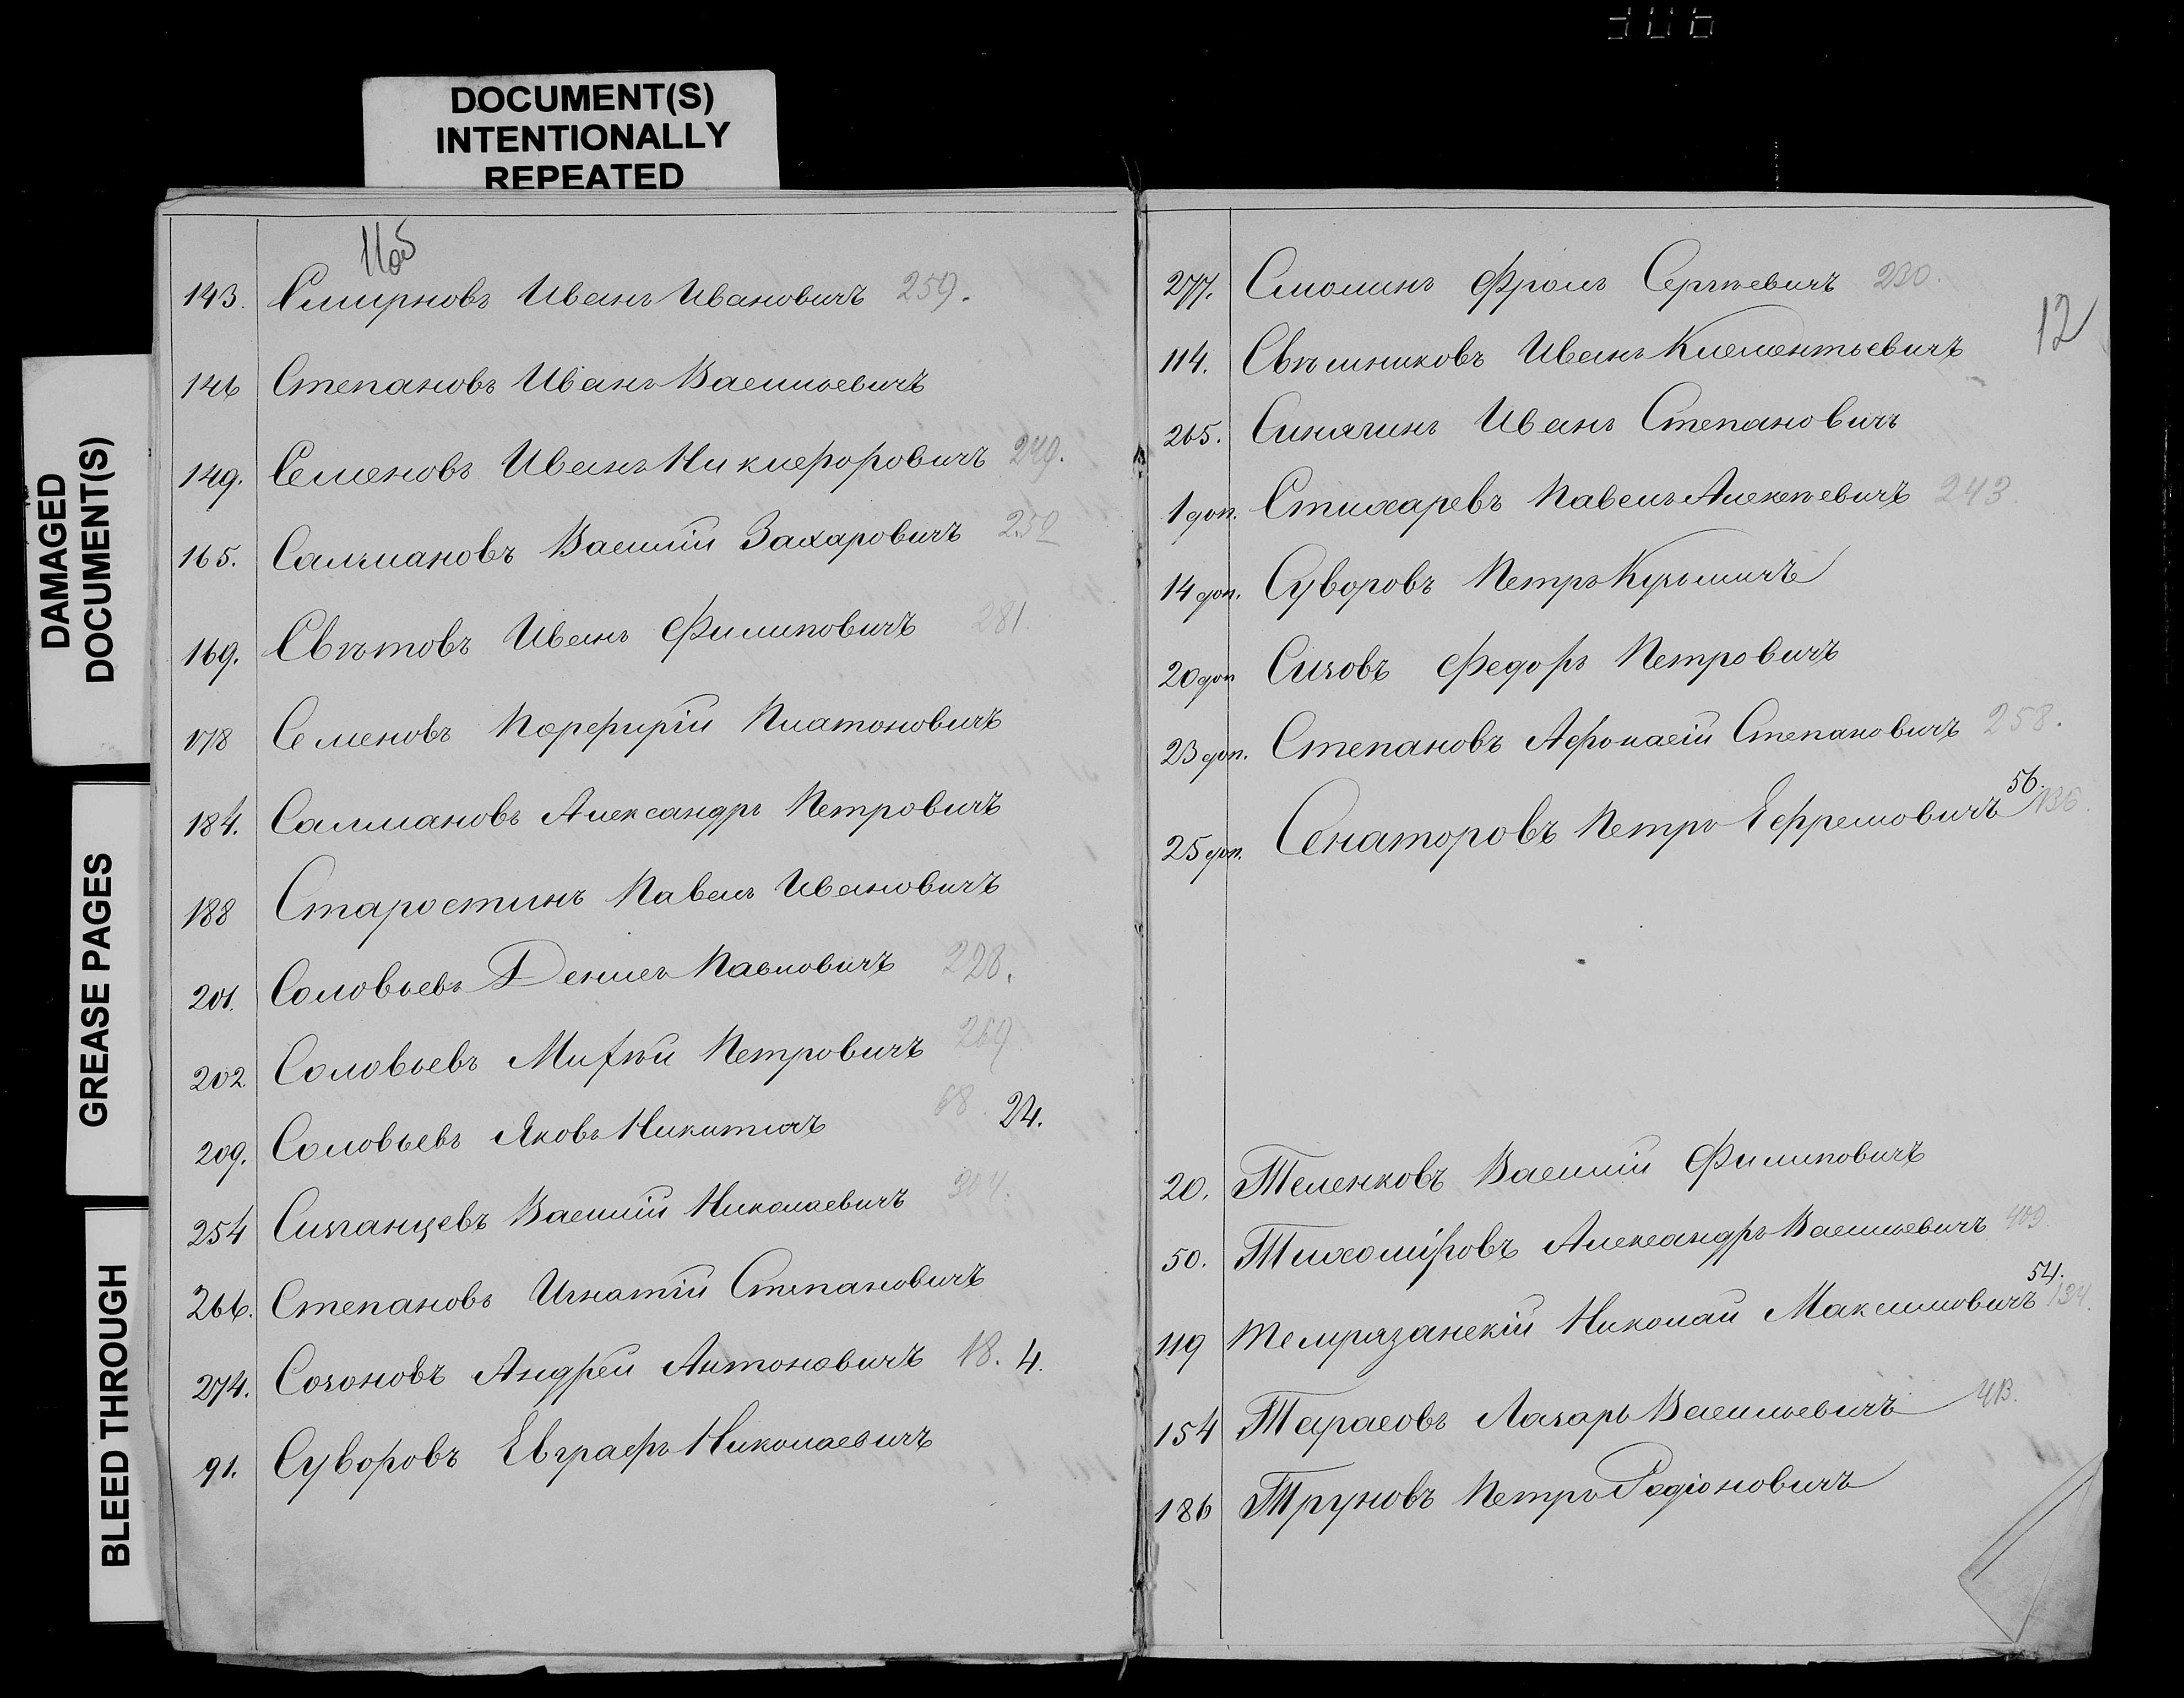 DOCUMENT(S)
INTENTIONALLY
REPEATED
DAMAGED
DOCUMENT(S)
GREASE PAGES
BLEED THROUGH
11об
143. Смирновъ Иванъ Ивановичъ 259.
146 Степановъ Иванъ Васильевичъ
149. Семеновъ Иванъ Никифоровичъ 249.
165. Салмановъ Василий Захаровичъ 252
169. Свѣтовъ Иванъ Филиповичъ 281.
178 Семеновъ Порфирій Платоновичъ
184. Салмановъ Александръ Петровичъ
188 Старостинъ Павелъ Ивановичъ
201. Соловьевъ Денисъ Павловичъ 228.
202. Соловьевъ Михѣй Петровичъ 269
209. Соловьевъ Яковъ Никитичъ 68. 24.
254 Василій Николаевичъ 304.
266. Степановъ Игнатій Степановичъ
274. Созоновъ Андрей Антоновичъ 18. 4.
91. Суворовъ Евграфъ Николаевичъ
12
277. Смолинъ Фролъ Сергѣевичъ 230.
114. Свѣшниковъ Иванъ Клементьевичъ
265. Синягинъ Иванъ Степановичъ
1 доп. Стихаревъ Павелъ Алексѣевичъ 243
14 доп. Суворовъ Петръ Кузьмичъ
20 доп Сизовъ Федоръ Петровичъ
23 доп. Степановъ Афонасій Степановичъ 258.
25 доп. Сенаторовъ Петръ Ефремовичъ 56. 136.
20. Теленковъ Василій Филиповичъ
50. Тихоміровъ Александръ Васильевичъ 409.
119 Темрязанскій Николай Максимовичъ 54. 134.
154 Тарасовъ Лазарь Васильевичъ
186 Труновъ Петръ Родіоновичъ